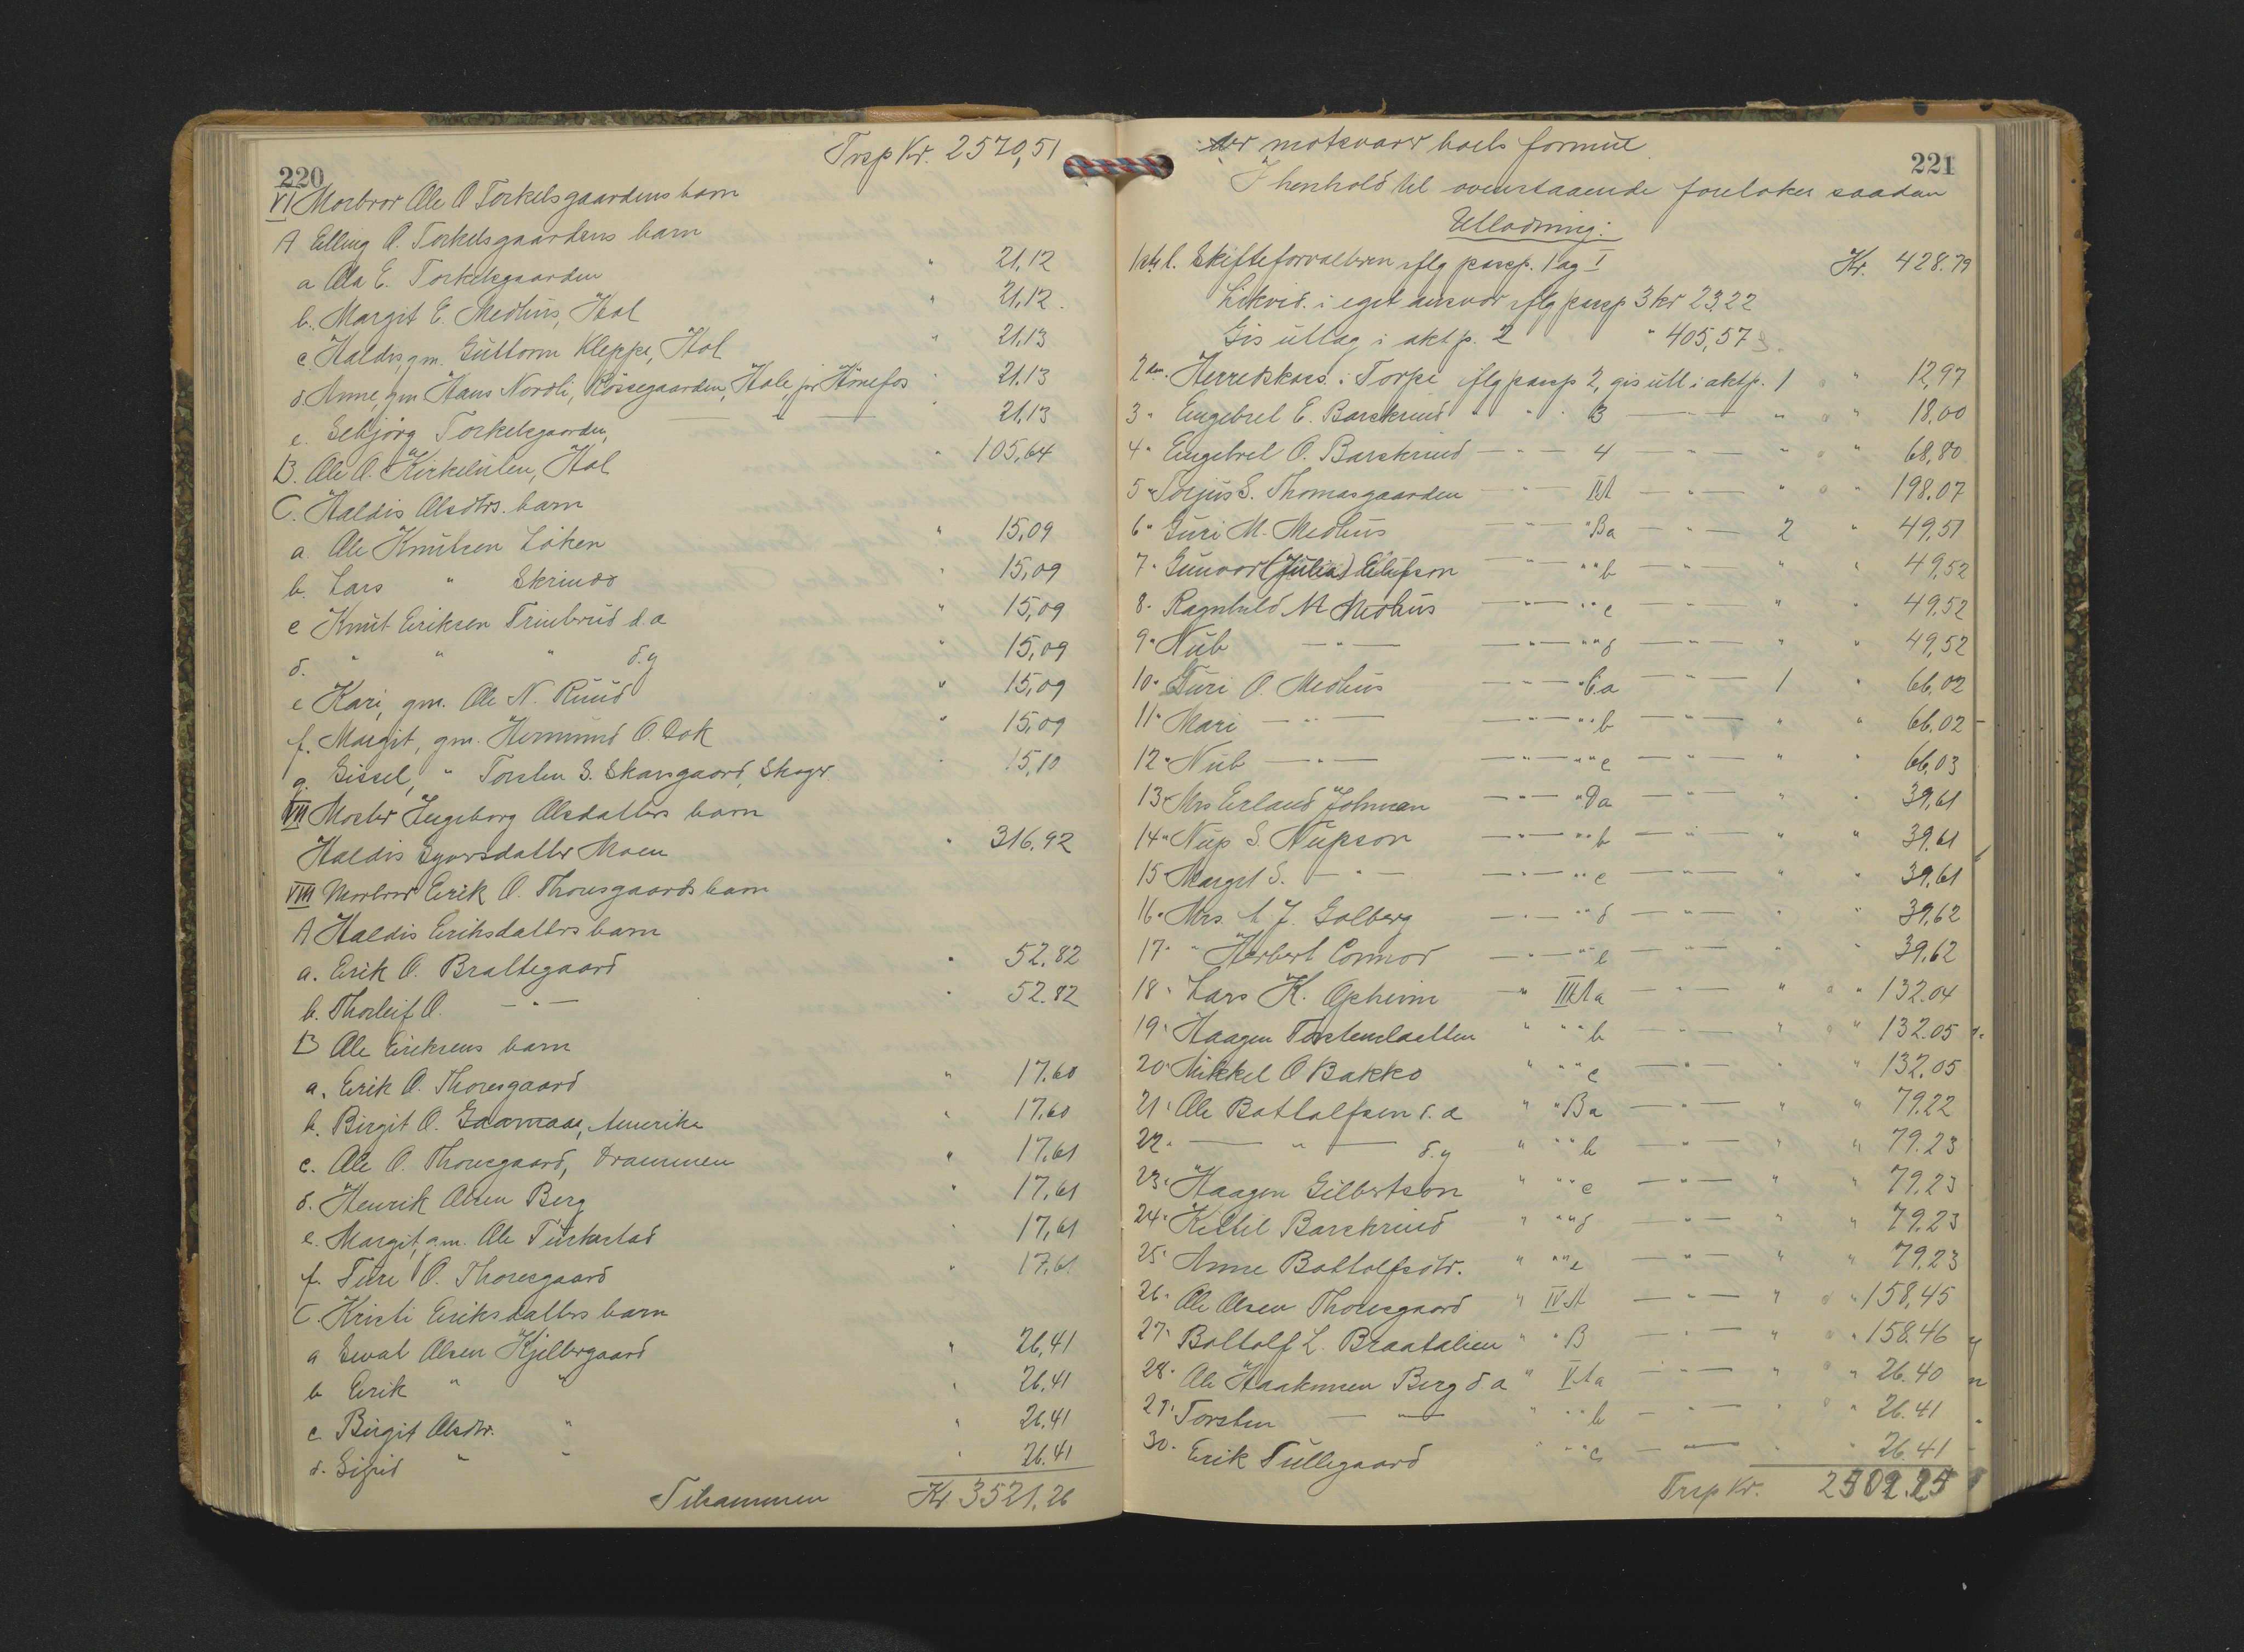 220
Trsp Kr. 2570,51
VI Morbror Ole O Torkelsgaardens barn
A Elling O. Torkelsgaardens barn
a Ola E. Torkelsgaarden " 21,12
b. Margit E. Medhus, Hol " 21,12.
c Haldis, gm. Guttorm Kleppe, Hol " 21,13
d. Anne, gm. Hans Nordli, Hole, pr Hønefos " 21,13
e. Sebjørg Torkelsgaarden, 21,13
B. Ole O. Kirkelilen, Hol " 105,64
C. Haldis Olsdtrs. barn
a. Ole Knutsen Løken " 15,09
b. Lars " Skrindo " 15,09
c Knut Eriksen Trinbrud d.a " 15,09
d. " " " d.y " 15,09
e Kari, gm. Ole N. Ruud " 15,09
f. Margit, gm. Hermund O. Dok " 15,09
g. Sissel, " Torsten S. Skarsgaard, " 15,10
VII Moster Ingeborg Olsdatters barn
Haldis Syversdatter Moen " 316,92
VIII Morbror Erik O. Thoresgaards barn
A Haldis Eriksdatters barn
a. Erik O. Brattegaard " 52.82
b. Thorleif O. — " — " 52.82
B Ole Eriksens barn
a. Erik O. Thoresgaard " 17.60
b. Birgit O. Gaarnaas, Amerika " 17.60
c. Ole O. Thoresgaard, Drammen " 17.61
d. Henrik Olsen Berg " 17.61
e. Margit, gm. Ole " 17,61
f. Ture O. Thoresgaard " 17.61
C. Kristi Eriksdatters barn
a Sevat Olsen Kjelbergaard " 26,41
b Erik " " " 26.41
c Birgit Olsdtr. " " 26.41
d. Sigrid " " " 26.41
Tilsammen Kr. 3521,26
221
der motsvarer boets formue.
I henhold til ovenstaaende foretokes saadan
Utlodning:
1ste l. Skifteforvalteren iflg passp. 1 og I Kr. 428.79
Likvid. i eget ansvar iflg passp 3 kr 23,22
Gis utlag i akt p. 2 " 405,57
2den. Herredskass. i Torpe iflg passp 2, gis utl i aktp. 1 " 12,97
3 " Engebret E. Barskrind " " " 3 — " — " " 18,00
4 " Engebret O. Barskrind — " — 4 — " — " " 68,80
5 " Torjus S. Thomasgaarden — " — IIA — " — " " 198.07
6 " Guri M. Medhus — " — " Ba — " — 2 " 49,51
7 " Gunvor (Julia) — " — " " b — " — " " 49,52
8 " Ragnhild M Medhus — " — " " c — " — " " 49,52
9 " Nub — " — — " — " " d — " — " " 49,52
10 " Turi O. Medhus — " — " C.a — " — 1 " 66,02
11 " Mari — " — — " — " " b — " — " " 66,02
12 " Nub — " — — " — " " c — " — " " 66,03
13 " Mrs Erland Johnson — " — " Da — " — " " 39,61
14 " Nup S Nupson — " — " " b — " — " " 39.61
15 " Margit S. — " — — " — " " c — " — " " 39,61
16 " Mrs. A. J. Golberg — " — " " d — " — " " 39,62
17 " " Herbert Connor — " — " " e — " — " " 39,62
18 " Lars K. Opheim — " IIIAa — " — " " 132.04
19 " Haagen Torstensletten " " " b — " — " " 132.05
20 " Mikkel O Bakko " " " c — " — " " 132,05
21 " Ole Botlolfsen d.a " " Ba — " — " " 79.22
22 " — " — d.y " " " b — " — " " 79.23
23 " Haagen Gilbertson " " " c — " — " " 79,23
24 " Kittil Barskrind " " " d — " — " " 79.23
25 " Anne Botlolfsdtr. " " " e — " — " " 79,23
26 " Ole Olsen Thoresgaard " IVA — " — " " 158,45
27 " Boltolf L. Braatalien " " B — " — " " 158.46
28 " Ole Haakonsen Berg d.a " VAa — " — " " 26.40
29 " Torsten — " — " " " b — " — " " 26.41
30 " Erik Tullegaard " " " c — " — " " 26.41
Trsp Kr. 2502.25